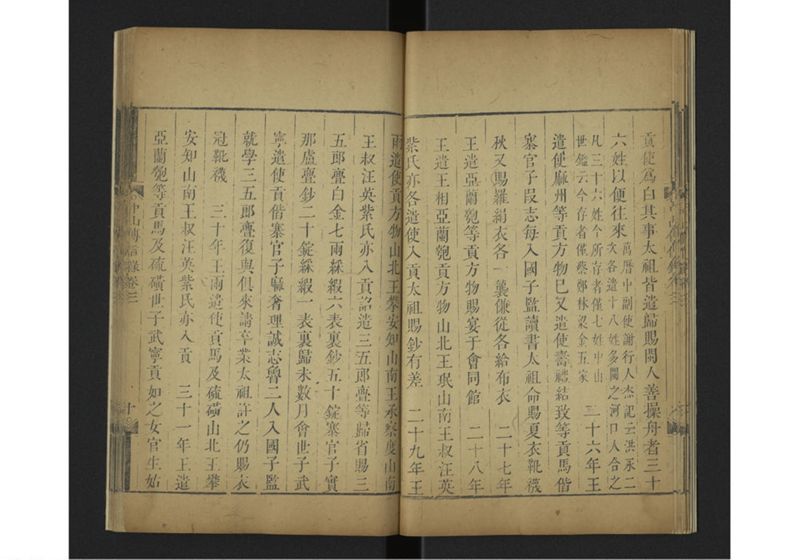 貢使爲白其事太祖皆遣歸賜閩人善操舟者三十
六姓以便往來萬曆中副使謝行人杰記云洪永二
次各遣十八姓多閩之河口人合之
凡三十六姓今所存者僅七姓中山
世鑑云今存者僅蔡鄭林梁金五家二十六年王
遣使麻州等貢方物已又遣使壽禮結致等貢馬偕
寨官子段志每入國子監讀書太祖命賜夏衣靴襪
秋又賜羅絹衣各一襲傔從各給布衣 二十七年
王遣亞蘭匏等貢方物賜宴于會同館 二十八年
王遣王相亞蘭匏貢方物山北王珉山南王叔汪英
紫氏亦各遣使入貢太祖賜鈔有差 二十九年王
兩遣使貢方物山北王攀安知山南王承察度山南
王叔汪英紫氏亦入貢詔遣三五郎亹等歸省賜三
五郎亹白金七兩綵緞六表裏鈔五十錠寨官子實
那盧亹鈔二十錠綵緞一表裏歸未數月會世子武
寧遣使貢偕寨官子麻奢理誠志魯二人入國子監
就學三五郎亹復與俱來請卒業太祖許之仍賜衣
冠靴襪 三十年王兩遣使貢馬及硫磺山北王攀
安知山南王叔汪英紫氏亦入貢 三十一年王遣
亞蘭匏等貢馬及硫磺世子武寧貢如之女官生始
中山傳信錄卷三
十